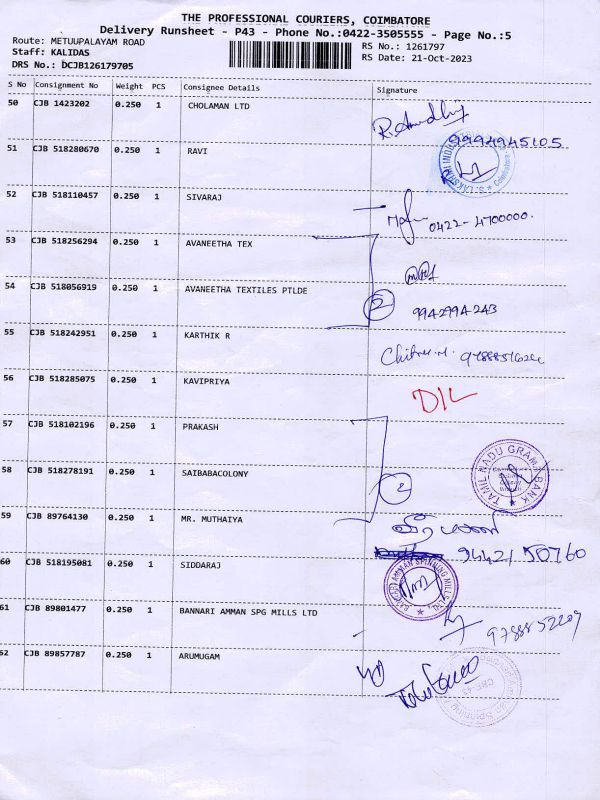 THE PROFESSIONAL COURIERS, COIMBATORE
Delivery Runsheet - P43 - Phone No.:0422-3505555 - Page No.:5
Route: METUUPALAYAM ROAD
RS No.: 1261797
Staff: KALIDAS
RS Date: 21-Oct-2023
DRS No.: DCJB126179705
S No Consignment No Weight PCS Consignee Details Signature
50 CJB 1423202 0.250 1 CHOLAMAN LTD
9994945105
51 CJB 518280670 0.250 1 RAVI
52 CJB 518110457 0.250 1 SIVARAJ
0422-4700000.
53 CJB 518256294 0.250 1 AVANEETHA TEX
54 CJB 518056919 0.250 1 AVANEETHA TEXTILES PTLDE
2
9942994243
55 CJB 518242951 0.250 1 KARTHIK R
56 CJB 518285075 0.250 1 KAVIPRIYA
D/L
57 CJB 518102196 0.250 1 PRAKASH
TAMIL NADU GRAMA BANK
58 CJB 518278191 0.250 1 SAIBABACOLONY
2
59 CJB 89764130 0.250 1 MR. MUTHAIYA
9442150760
60 CJB 518195081 0.250 1 SIDDARAJ
61 CJB 89801477 0.250 1 BANNARI AMMAN SPG MILLS LTD
62 CJB 89857787 0.250 1 ARUMUGAM